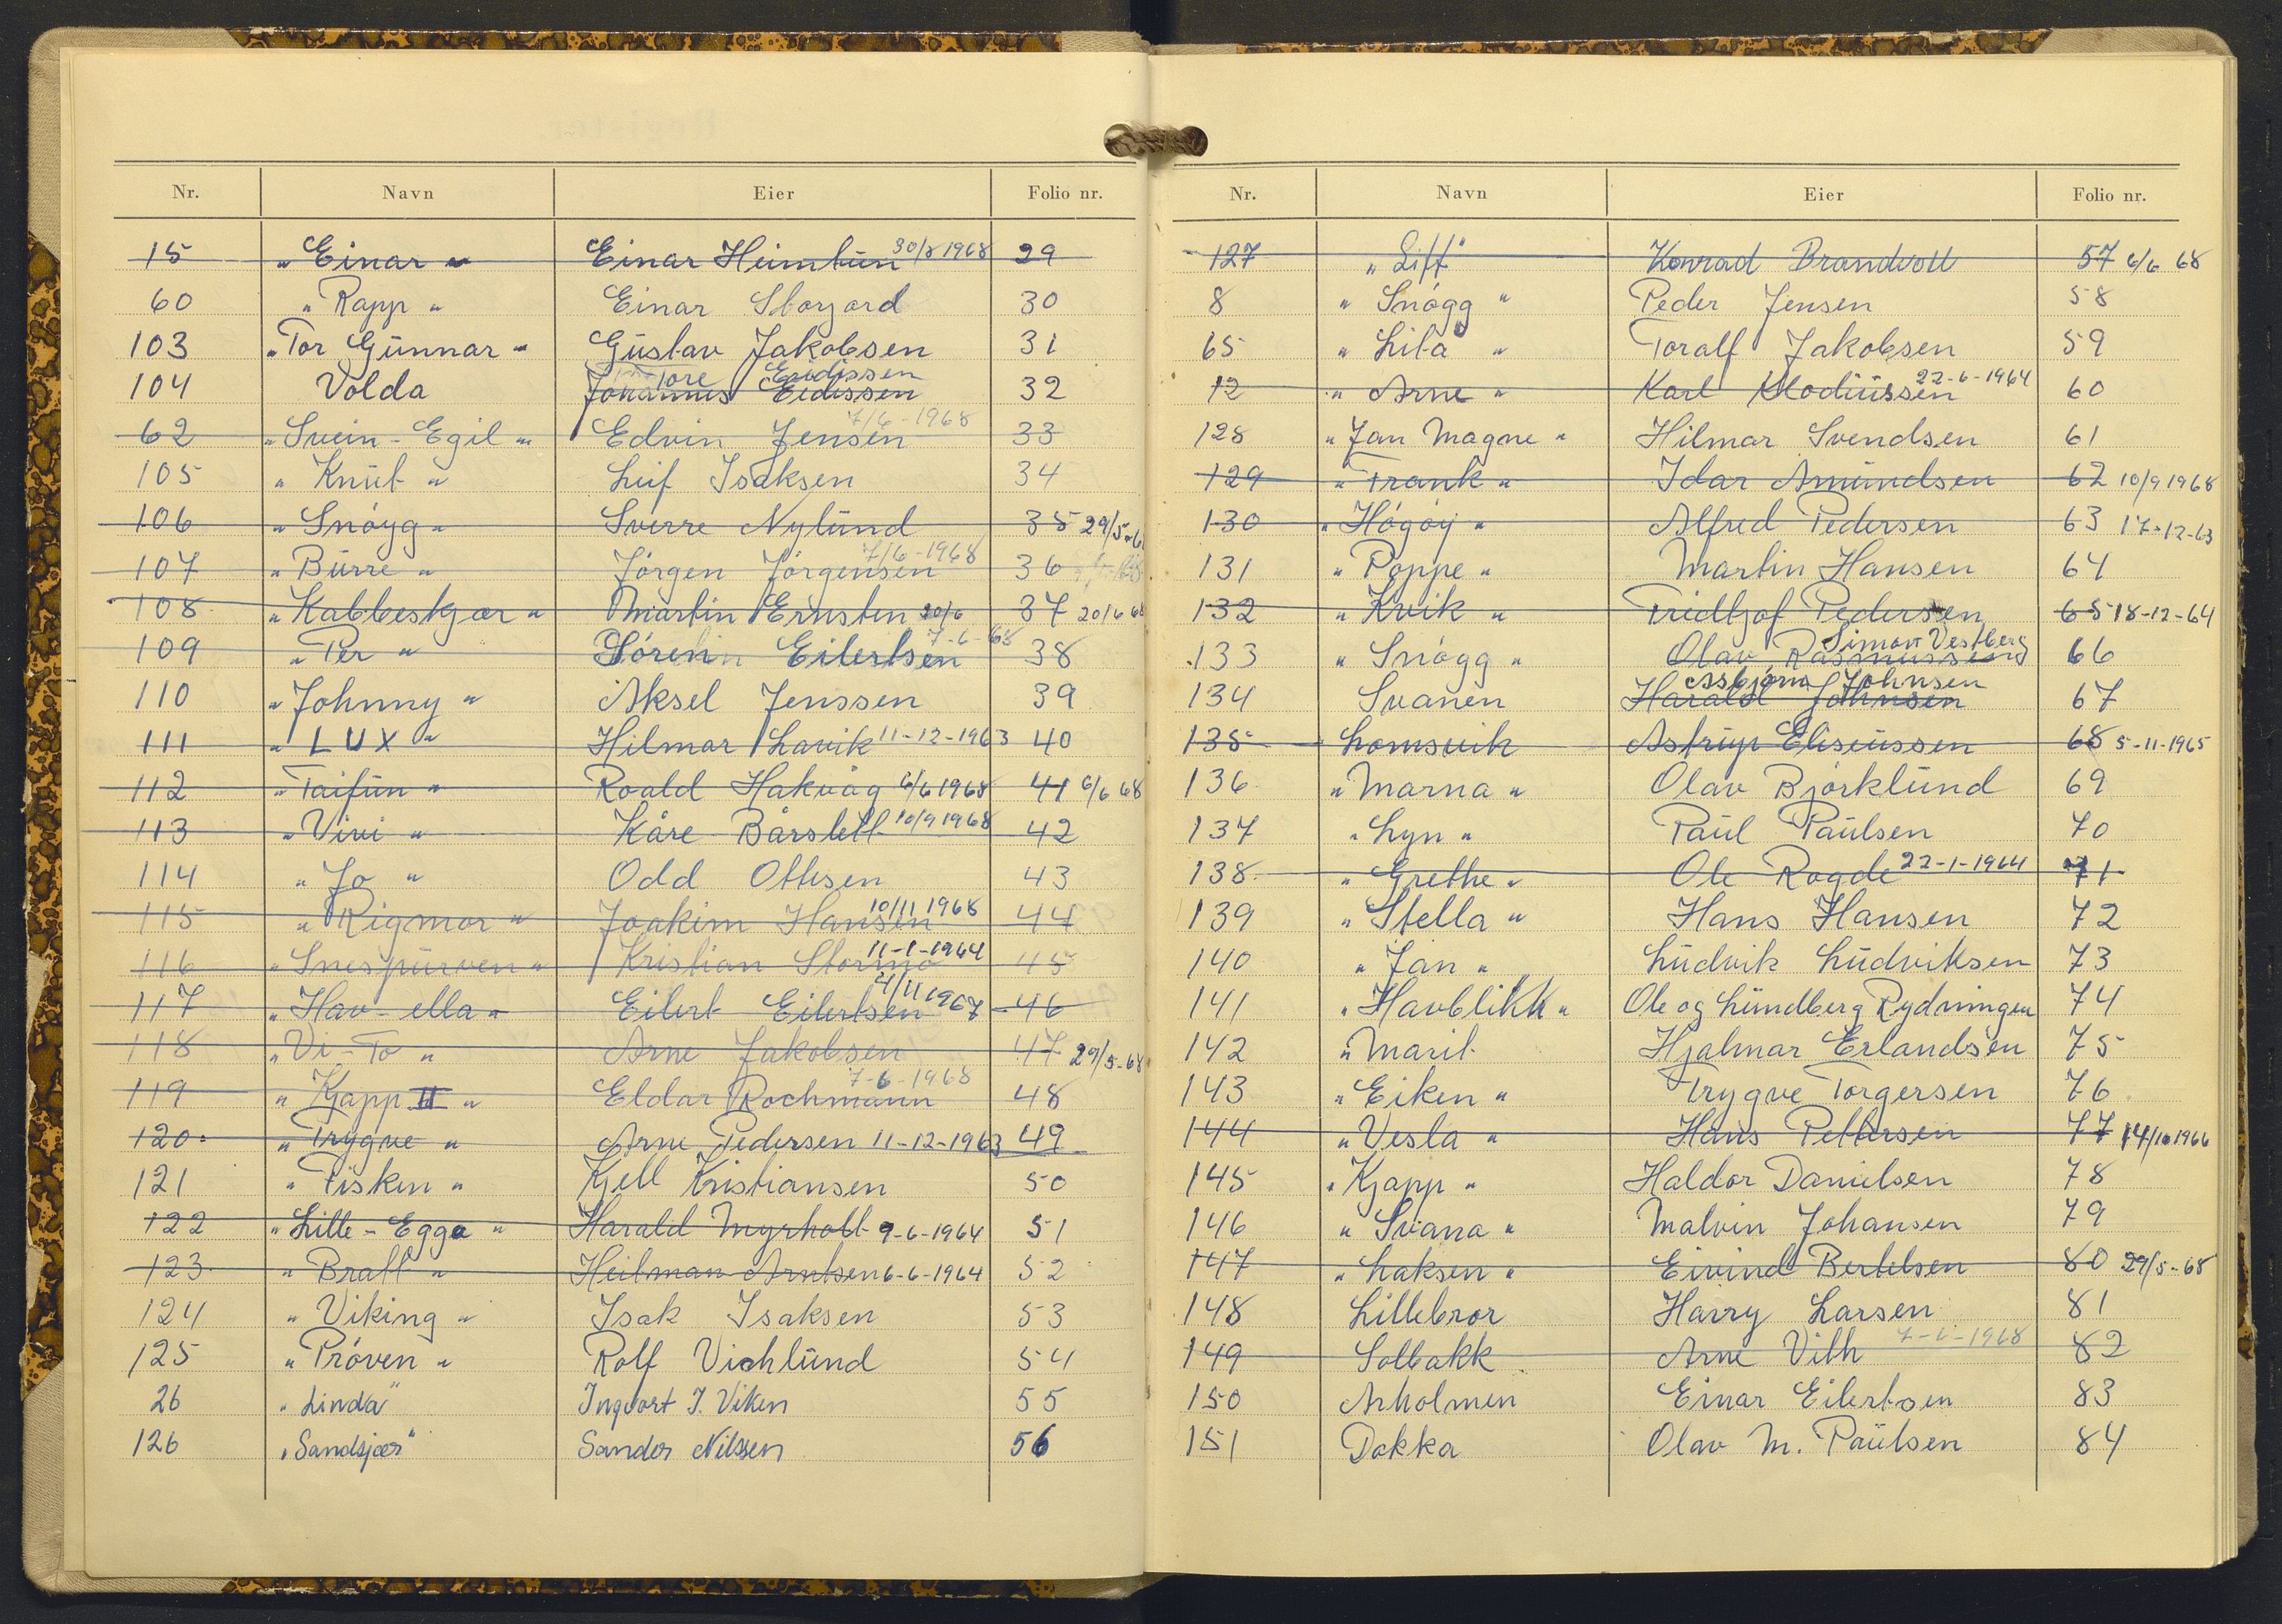 Nr. Navn Eier Folio nr.
15 „Einar" Einar Heimtun 30/8 1968 29
60 „Rapp" Einar Storjord 30
103 „Tor Gunnar" Gustav Jakobsen 31
Tore Eidissen
104 Volda Johannes Eidissen 32
62 „Svein-Egil" Edvin Jensen 7/6-1968 33
105 „Knut" Leif Isaksen 34
106 „Snögg" Sverre Nylund 35 29/5-6
107 „Burre" Jörgen Jörgensen 7/6-1968 36
108 „Kabbeskjær" Martin Ernsten 20/6 37 20/6 68
109 „Per" Sören Eilertsen 7-6-68 38
110 „Johnny" Aksel Jenssen 39
111 „LUX" Hilmar Lavik 11-12-1963 40
112 „Taifun" Roald Hakvåg 6/6 1968 41 6/6 68
113 „Vivi" Kåre Bårslett 10/9 1968 42
114 „Jo" Odd Ottesen 43
115 „Rigmor" Joakim Hansen 10/11 1968 44
116 „Snespurven" Kristian Stormo 11-1-1964 45
117 „Hav-ella" Eilert Eilertsen 4/11 1967 46
118 „Vi-To" Arne Jakobsen 47 29/5-68
119 „Kjapp II" Eldar Rochmann 7-6-1968 48
120 „Trygve" Arne Pedersen 11-12-1963 49
121 „Fisken" Kjell Kristiansen 50
122 „Lille-Egga" Harald Myrholt 9-6-1964 51
123 „Bratt" Heilman Arntsen 6-6-1964 52
124 „Viking" Isak Isaksen 53
125 „Pröven" Rolf Vichlund 54
26 „Linda" Ingvart J. Viken 55
126 „Sandsjær" Sander Nilssen 56
Nr. Navn Eier Folio nr.
127 „Liff" Konrad Brandvoll 57 6/6 68
8 „Snögg" Peder Jensen 58
65 „Lita" Toralf Jakobsen 59
12 „Arne" Karl Klodiussen 22-6-1964 60
128 „Jan Magne" Hilmar Svendsen 61
129 „Frank" Idar Amundsen 62 10/9 1968
130 „Högöy" Alfred Pedersen 63 17-12-63
131 „Poppe" Martin Hansen 64
132 „Kvik" Fridtjof Pedersen 65 18-12-64
Simon Vestberg
133 „Snögg" Olav Rasmussen 66
Asbjørn Johnsen
134 Svanen Harald Johnsen 67
135 Lomsvik Astrup Eliseussen 68 5-11-1965
136 „Marna" Olav Björklund 69
137 „Lyn" Paul Paulsen 70
138 „Grethe" Ole Rogde 22-1-1964 71
139 „Stella" Hans Hansen 72
140 „Jan" Ludvik Ludviksen 73
141 „Havblikk" Ole og Lundberg Rydningen 74
142 „Marit Hjalmar Erlandsen 75
143 „Eiken" Trygve Torgersen 76
144 „Vesla" Hans Pettersen 77 14/10 1966
145 „Kjapp" Haldor Danielsen 78
146 „Svana" Malvin Johansen 79
147 „Laksen" Eivind Bertelsen 80 29/5-68
148 Lillebror Harry Larsen 81
149 Solbakk Arne Vith 7-6-1968 82
150 Arholmen Einar Eilertsen 83
151 Dokka Olav M. Paulsen 84